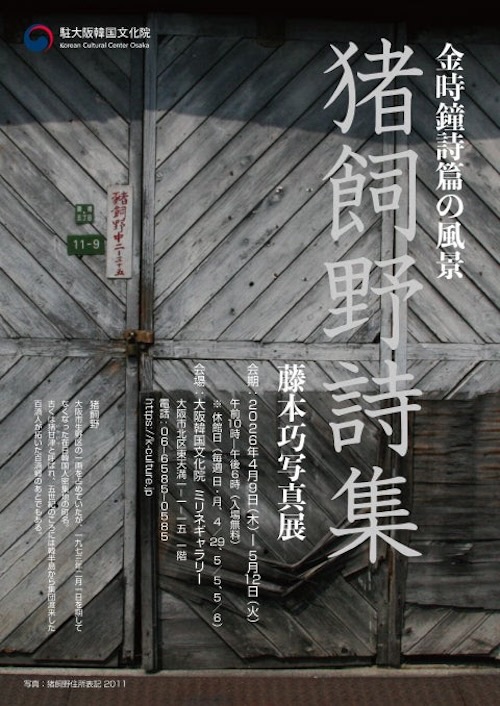 駐大阪韓国文化院
Korean Cultural Center Osaka
金時鐘詩篇の風景
猪飼野詩集
藤本巧写真展
会期：2026年4月9日(木)ー5月12日(火)
午前10時ー午後6時（入場無料）
※ 休館日（毎週 日・月、4/29、5/5、5/6）
会場：大阪韓国文化院 ミリネギャラリー
大阪市北区東天満一ー一ー一五 一階
電話：06ー6585ー0585
https://k-culture.jp
猪飼野
大阪市生野区の一画を占めていたが、一九七三年二月一日を期して
なくなった在日韓国人密集地の町名。
古くは猪甘津と呼ばれ、五世紀のころには韓半島から集団渡来した
百済人が拓いた百済郷のあとでもある。
11-9
猪飼野中二ー三十五
写真：猪飼野住所表記 2011